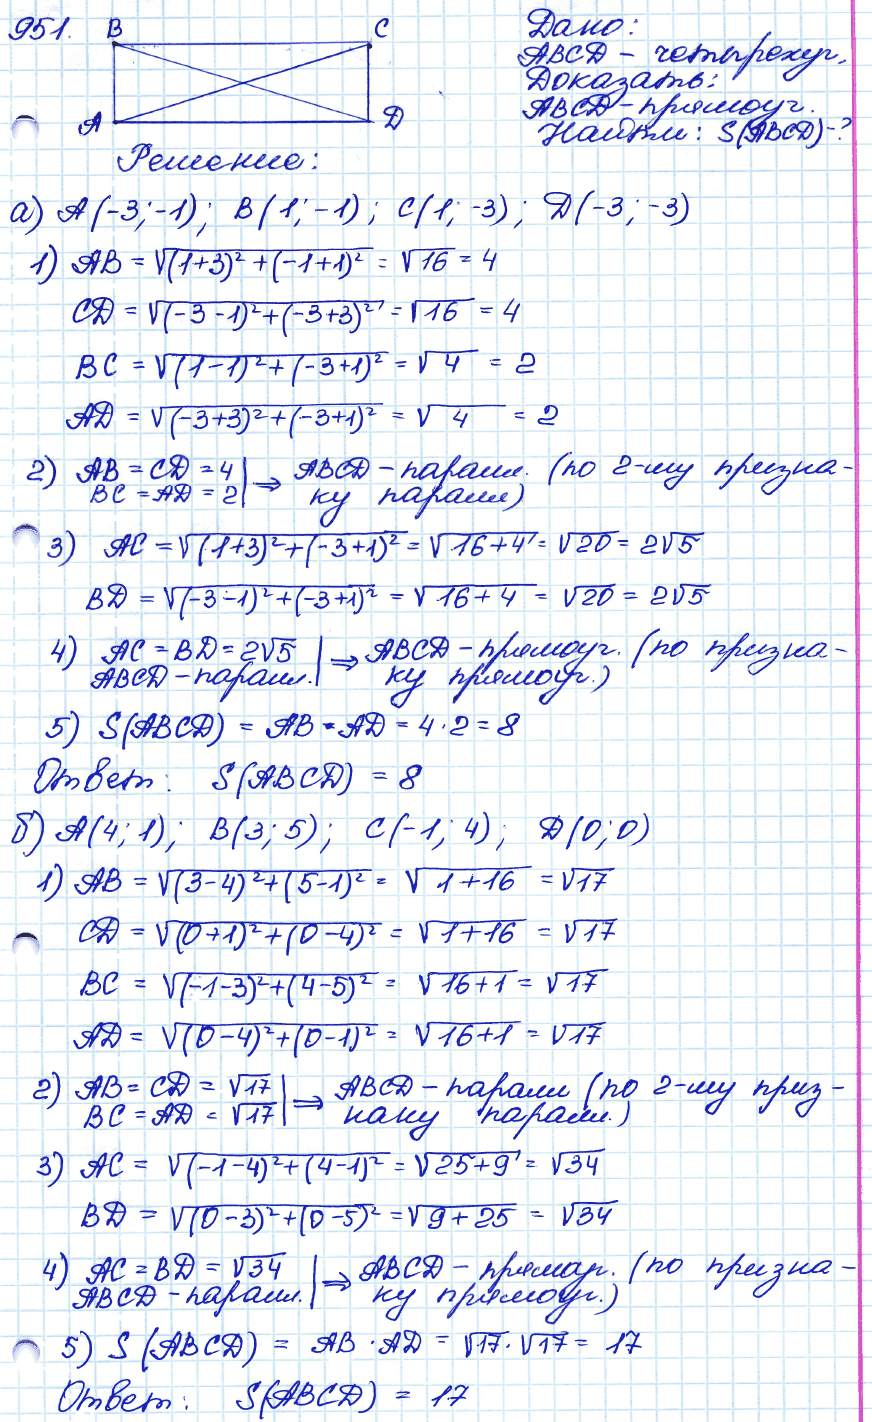 951.
B C
A D
Дано:
ABCD - четырехуг.
Доказать:
ABCD - прямоуг.
Найти: S(ABCD) - ?
Решение:
а) A(-3; -1); B(1; -1); C(1; -3); D(-3; -3)
1) AB = √(1+3)² + (-1+1)² = √16 = 4
CD = √(-3-1)² + (-3+3)² = √16 = 4
BC = √(1-1)² + (-3+1)² = √4 = 2
AD = √(-3+3)² + (-3+1)² = √4 = 2
2) AB = CD = 4 | ⇒ ABCD - паралл. (по 2-му призна-
BC = AD = 2 | ку паралл)
3) AC = √(1+3)² + (-3+1)² = √16+4 = √20 = 2√5
BD = √(-3-1)² + (-3+1)² = √16+4 = √20 = 2√5
4) AC = BD = 2√5 | ⇒ ABCD - прямоуг. (по призна-
ABCD - паралл. | ку прямоуг.)
5) S(ABCD) = AB · AD = 4 · 2 = 8
Ответ: S(ABCD) = 8
б) A(4; 1); B(3; 5); C(-1; 4); D(0; 0)
1) AB = √(3-4)² + (5-1)² = √1+16 = √17
CD = √(0+1)² + (0-4)² = √1+16 = √17
BC = √(-1-3)² + (4-5)² = √16+1 = √17
AD = √(0-4)² + (0-1)² = √16+1 = √17
2) AB = CD = √17 | ⇒ ABCD - паралл (по 2-му приз-
BC = AD = √17 | наку паралл.)
3) AC = √(-1-4)² + (4-1)² = √25+9 = √34
BD = √(0-3)² + (0-5)² = √9+25 = √34
4) AC = BD = √34 | ⇒ ABCD - прямоуг. (по призна-
ABCD - паралл. | ку прямоуг.)
5) S(ABCD) = AB · AD = √17 · √17 = 17
Ответ: S(ABCD) = 17